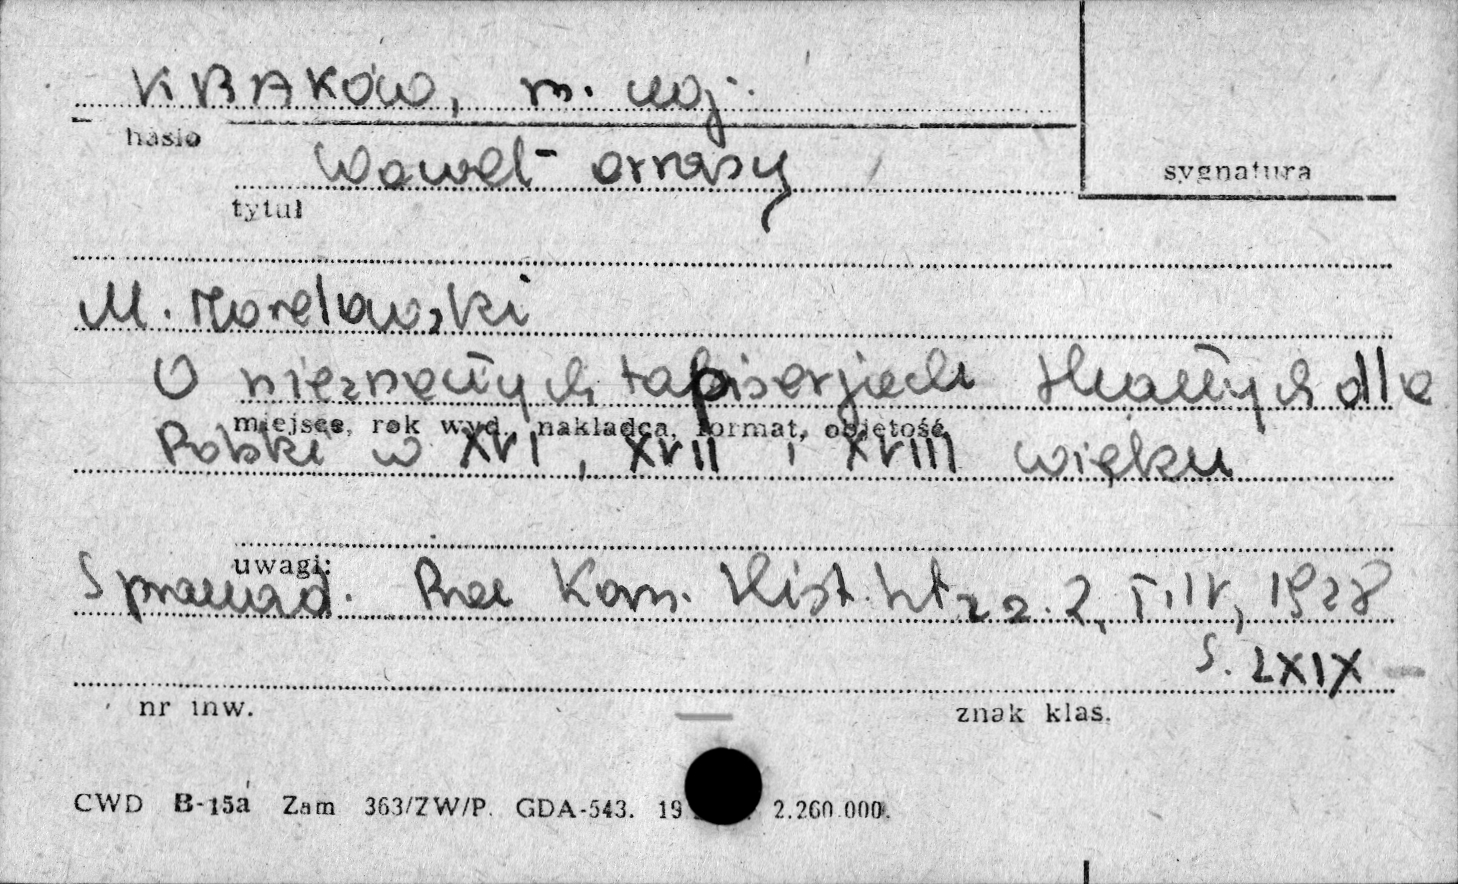 KRAKÓW, m. woj.
hasło
Wawel - arrasy
sygnatura
tytuł
M. Morelowski
O nieznanych tapiserjach tkanych dla
miejsce, rok wyd., nakładca, format, objętość
Polski w XVI, XVII i XVIII wieku
uwagi:
Sprawozd. Prac Kom. Hist. Szt. z. 2, T. IV, 1928
s. LXIX
nr inw.
znak klas.
CWD B-15a Zam 363/ZW/P. GDA-543. 19 2.260.000.